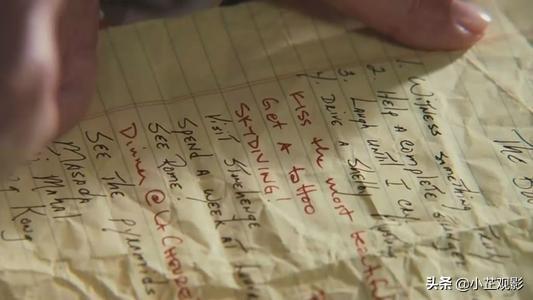 The
1. Witness something
2. Help a complete stranger
3. Laugh until I cry
4. Drive a Shelby
Kiss the most
Get a tattoo
SKYDIVING!
Visit Stonehenge
Spend a week at
See Rome.
Dinner @ La
See the pyramids
Masada
Mahal
Kong
头条 @小芷观影